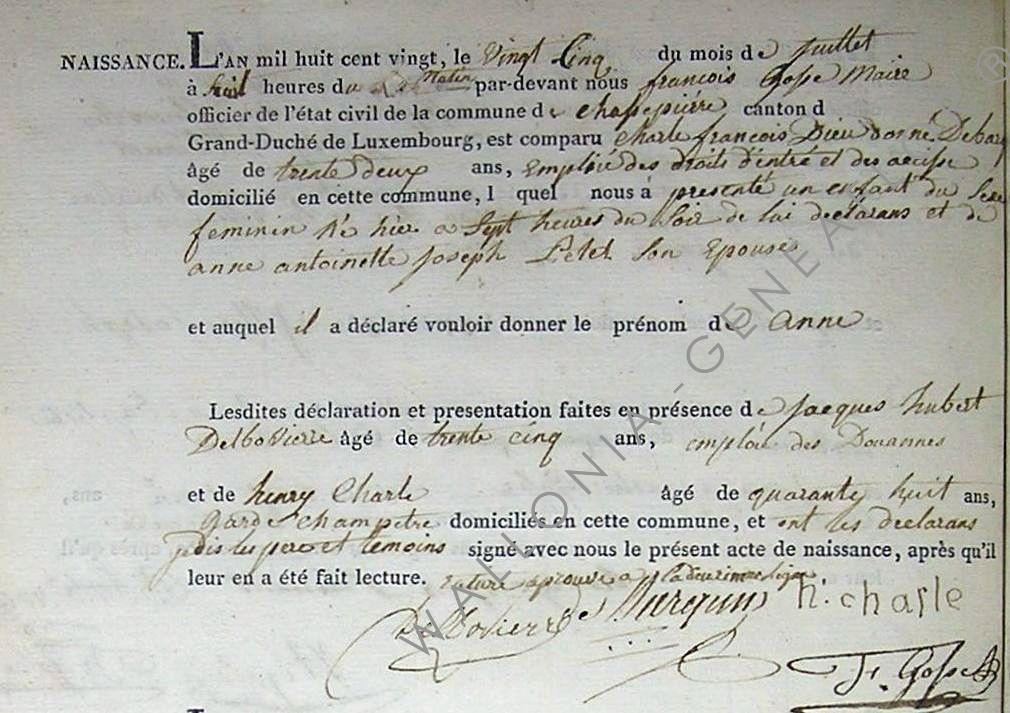 NAISSANCE. L'AN mil huit cent vingt, le Vingt Cinq du mois de Juillet
à huit heures du Matin par-devant nous françois Gosse Maire
officier de l'état civil de la commune de chassepierre canton d
Grand-Duché de Luxembourg, est comparu Charle françois Dieu donné Debarq
âgé de trente deux ans, Emploié des droits d'entré et des accise
domicilié en cette commune, l quel nous à presenté un enfant du Sexe
feminin Né hier a Sept heures du Soir de lui declarans et de
anne antoinette Joseph Petet Son Epouse
et auquel il a déclaré vouloir donner le prénom de anne
Lesdites déclaration et presentation faites en présence de Jacques hubert
DelboVierre âgé de trente cinq ans, emploié des Douannes
et de henry Charle âgé de quaranty huit ans,
Garde champetre domiciliés en cette commune, et ont les declarans
pere et temoins signé avec nous le présent acte de naissance, après qu'il
leur en a été fait lecture. rature aprouvé a la deuxime ligne
h. charle
F. Gosse
WALLONIA-GENEALOGY
®